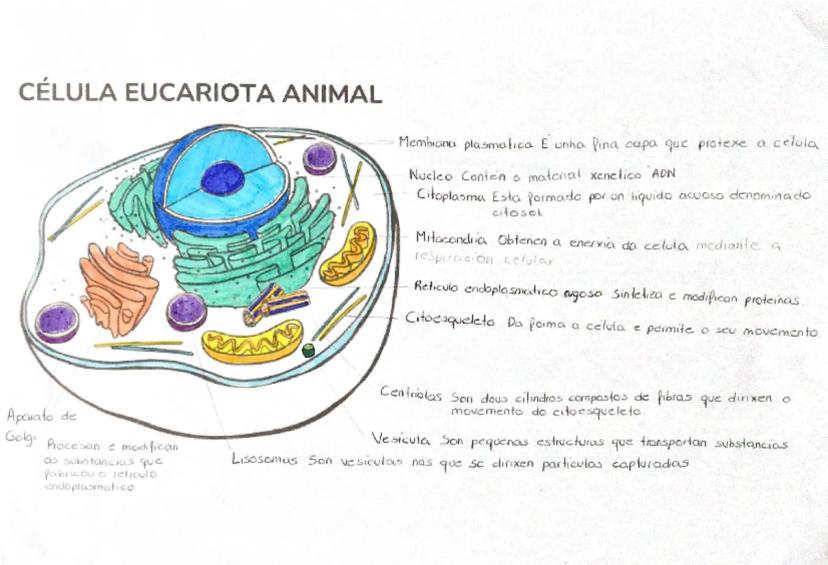 CÉLULA EUCARIOTA ANIMAL
Membrana plasmatica É unha fina capa que protexe a célula
Nucleo Conten o material xenetico ADN
Citoplasma Esta formado por un liquido acuoso denominado
citosol
Mitocondria Obtenen a enerxia da celula mediante a
respiracion celular
Reticulo endoplasmatico rugoso Sintetiza e modifican proteinas
Citoesqueleto Da forma a célula e permite o seu movemento
Centriolos Son dous cilindros compostos de fibras que dirixen o
movemento do citoesqueleto.
Vesicula Son pequenas estructuras que transportan substancias
Lisosomas Son vesiculas nas que se dirixen particulas capturadas
Aparato de
Golgi Procesan e modifican
as substancias que
fabricou o reticulo
endoplasmatico